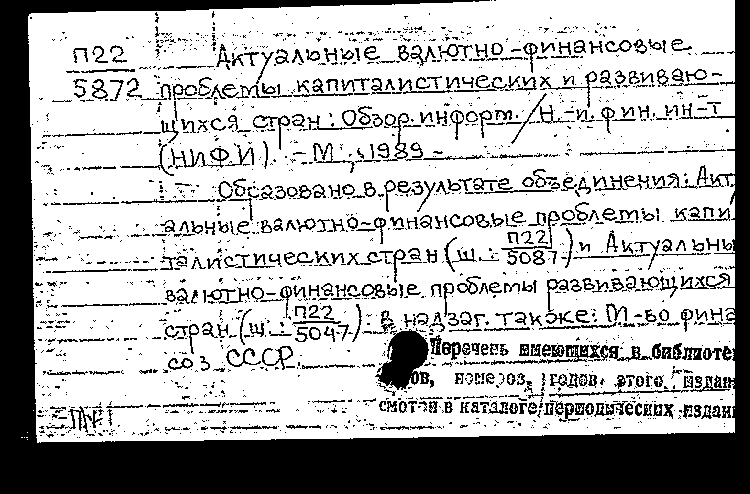 П22
5872
Актуальные валютно-финансовые
проблемы капиталистических и развиваю-
щихся стран: Обзор. информ. / Н.-и. фин. ин-т
(НИФИ). - М., 1989 -
Образовано в результате объединения: Акт
альные валютно-финансовые проблемы капи
талистических стран (ш.: П22/5087) и Актуальны
валютно-финансовые проблемы развивающихся
стран (ш.: П22/5047). В надзаг. также: М-во фина
сов СССР.
Перечень имеющихся в библиоте
ов, номеров, годов этого издан
смотри в каталоге периодических издани